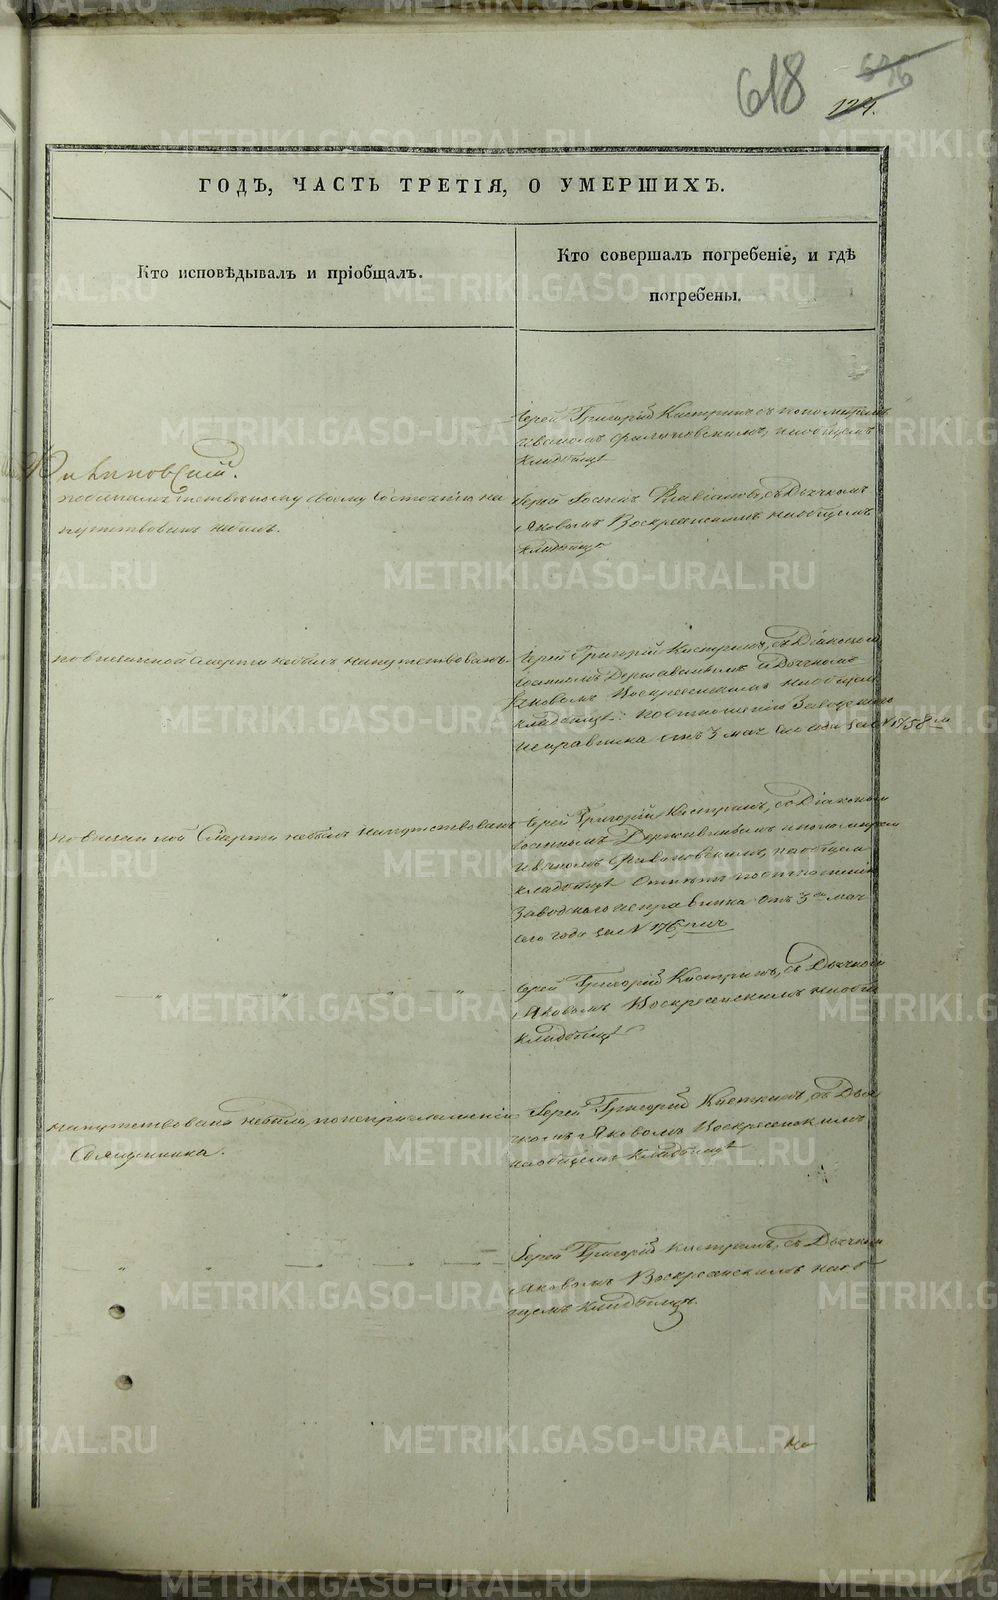 618
676
124.
ГОДЪ, ЧАСТЬ ТРЕТІЯ, О УМЕРШИХЪ.
Кто исповѣдывалъ и пріобщалъ.
Кто совершалъ погребеніе, и гдѣ
погребены.
Іерей Григорій Кастринъ съ пономаремъ
Иваномъ Филиповскимъ, на общемъ
кладбищѣ
Іерей Флавіановъ, съ Дьячкомъ
Яковомъ Воскресенскимъ на общемъ
кладбищѣ
своему состоянію на
путствованъ небылъ.
по внезапной смерти небылъ напутствованъ
Іерей Григорій Кастринъ, съ Діакономъ
Іоанномъ Державинымъ и Дьячкомъ
Яковомъ Воскресенскимъ на общемъ
кладбищѣ: по отношенію Заводскаго
исправника отъ 3 мая сего года за № 1758 м
по внезапной смерти небылъ напутствованъ
Іерей Григорій Кастринъ, съ Діакономъ
Іоанномъ Державинымъ и пономаремъ
Иваномъ Филиповскимъ, на общемъ
кладбищѣ по отношенію
Заводскаго исправника отъ 3 мая
сего года за №
Іерей Григорій Кастринъ, съ Дьячкомъ
Яковомъ Воскресенскимъ на общ
кладбищѣ
напутствована небыла, по неприглашенію
Священника.
Іерей Григорій Кастринъ, съ Дья
чкомъ Яковомъ Воскресенскимъ
на общемъ кладбищѣ
Іерей Григорій Кастринъ, съ Дьячкомъ
Яковомъ Воскресенскимъ на об
щемъ кладбищѣ.
METRIKI.GASO-URAL.RU